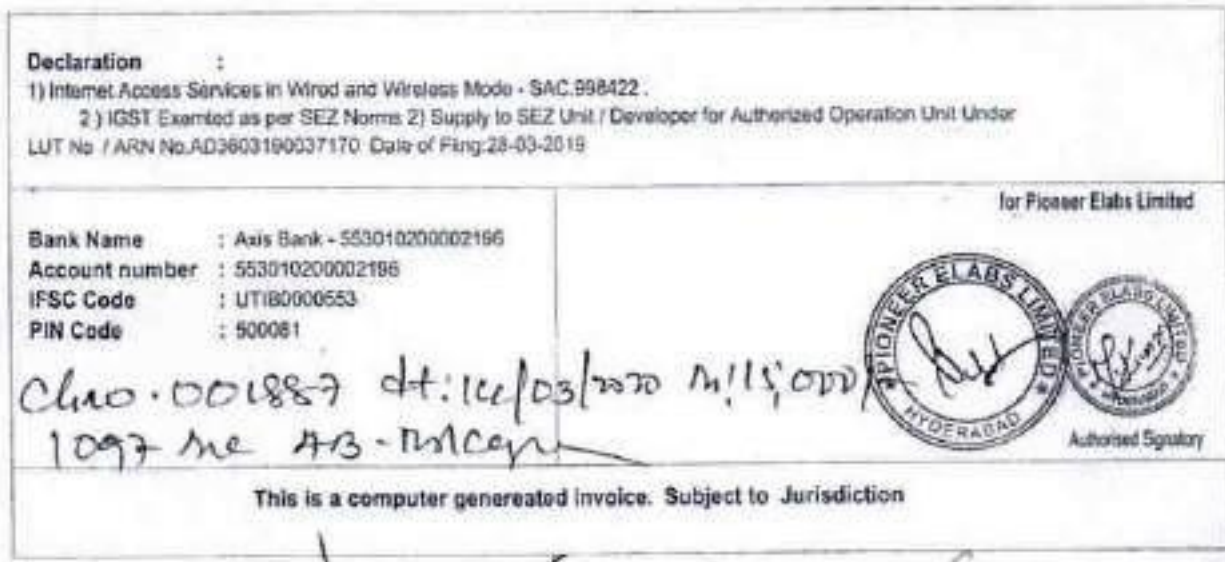 Declaration :
1) Internet Access Services in Wired and Wireless Mode - SAC.998422 .
2 ) IGST Exemted as per SEZ Norms 2) Supply to SEZ Unit / Developer for Authorized Operation Unit Under
LUT No / ARN No.AD3603190037170 Date of Filing:28-03-2019
for Pioneer Elabs Limited
Bank Name : Axis Bank - 553010200002196
Account number : 553010200002196
IFSC Code : UTIB0000553
PIN Code : 500081
PIONEER ELABS LIMITED
HYDERABAD
PIONEER ELABS LIMITED
HYDERABAD
001887 dt: /03/2020 15,000/
1097
Authorised Signatory
This is a computer genereated invoice. Subject to Jurisdiction